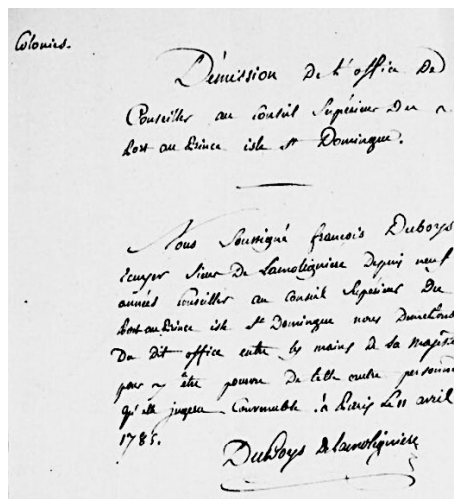 Colonies.
Démission de l'office De
Conseiller au Conseil Supérieur du
Port au Prince isle St Domingue.
Nous Soussigné françois Duboys
Ecuyer Sieur De Lamolignière Depuis neuf
années Conseiller au Conseil Superieur Du
Port au Prince isle St Domingue nous Demettons
Du dit office entre les mains de sa majesté
pour y être pourvu de telle autre personne
qu'elle jugera Convenable. à Paris Le 11 avril
1785.
DuBoys de lamolignière